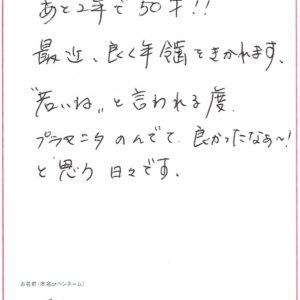 あと2年で50才!!
最近、良く年齢をきかれます。
"若いね"と言われる度、
プラセンタのんでて良かったなぁ〜!
と思う日々です。
お名前(本名orペンネーム)